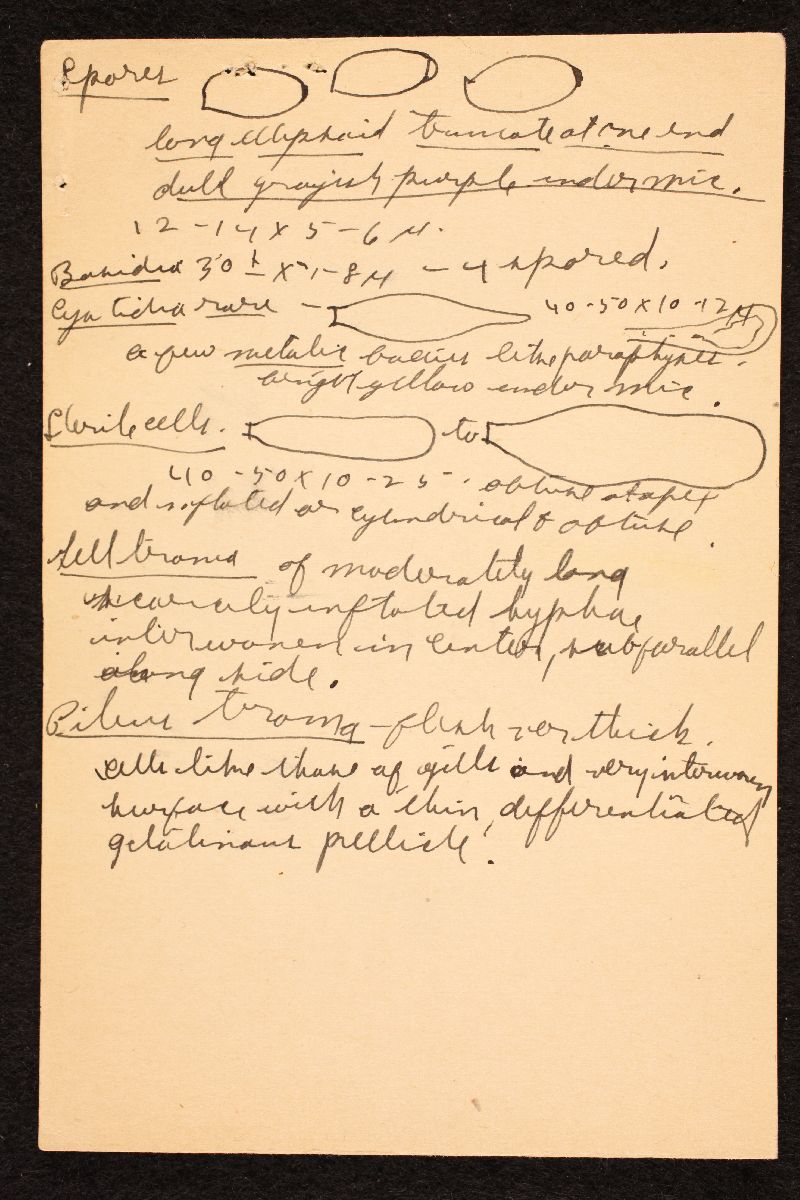 Spores
long ellipsoid truncate at one end
dull grayish purple under mic.
12-14 x 5-6 µ.
Basidia 30 ± x 7-8 µ - 4 spored.
Cystidia rare - 40-50 x 10-12 µ
a few metalic bodies like paraphyses.
bright yellow under mic.
Sterile cells. to
40-50 x 10-25. obtuse at apex
and inflated or cylindrical & obtuse.
Gill trama of moderately long
scarcely inflated hyphae
interwoven in center, subparallel
along side.
Pileus trama - flesh very thick.
cells like those of gills and very interwoven
surface with a thin, differentiated
gelatinous pellicle.